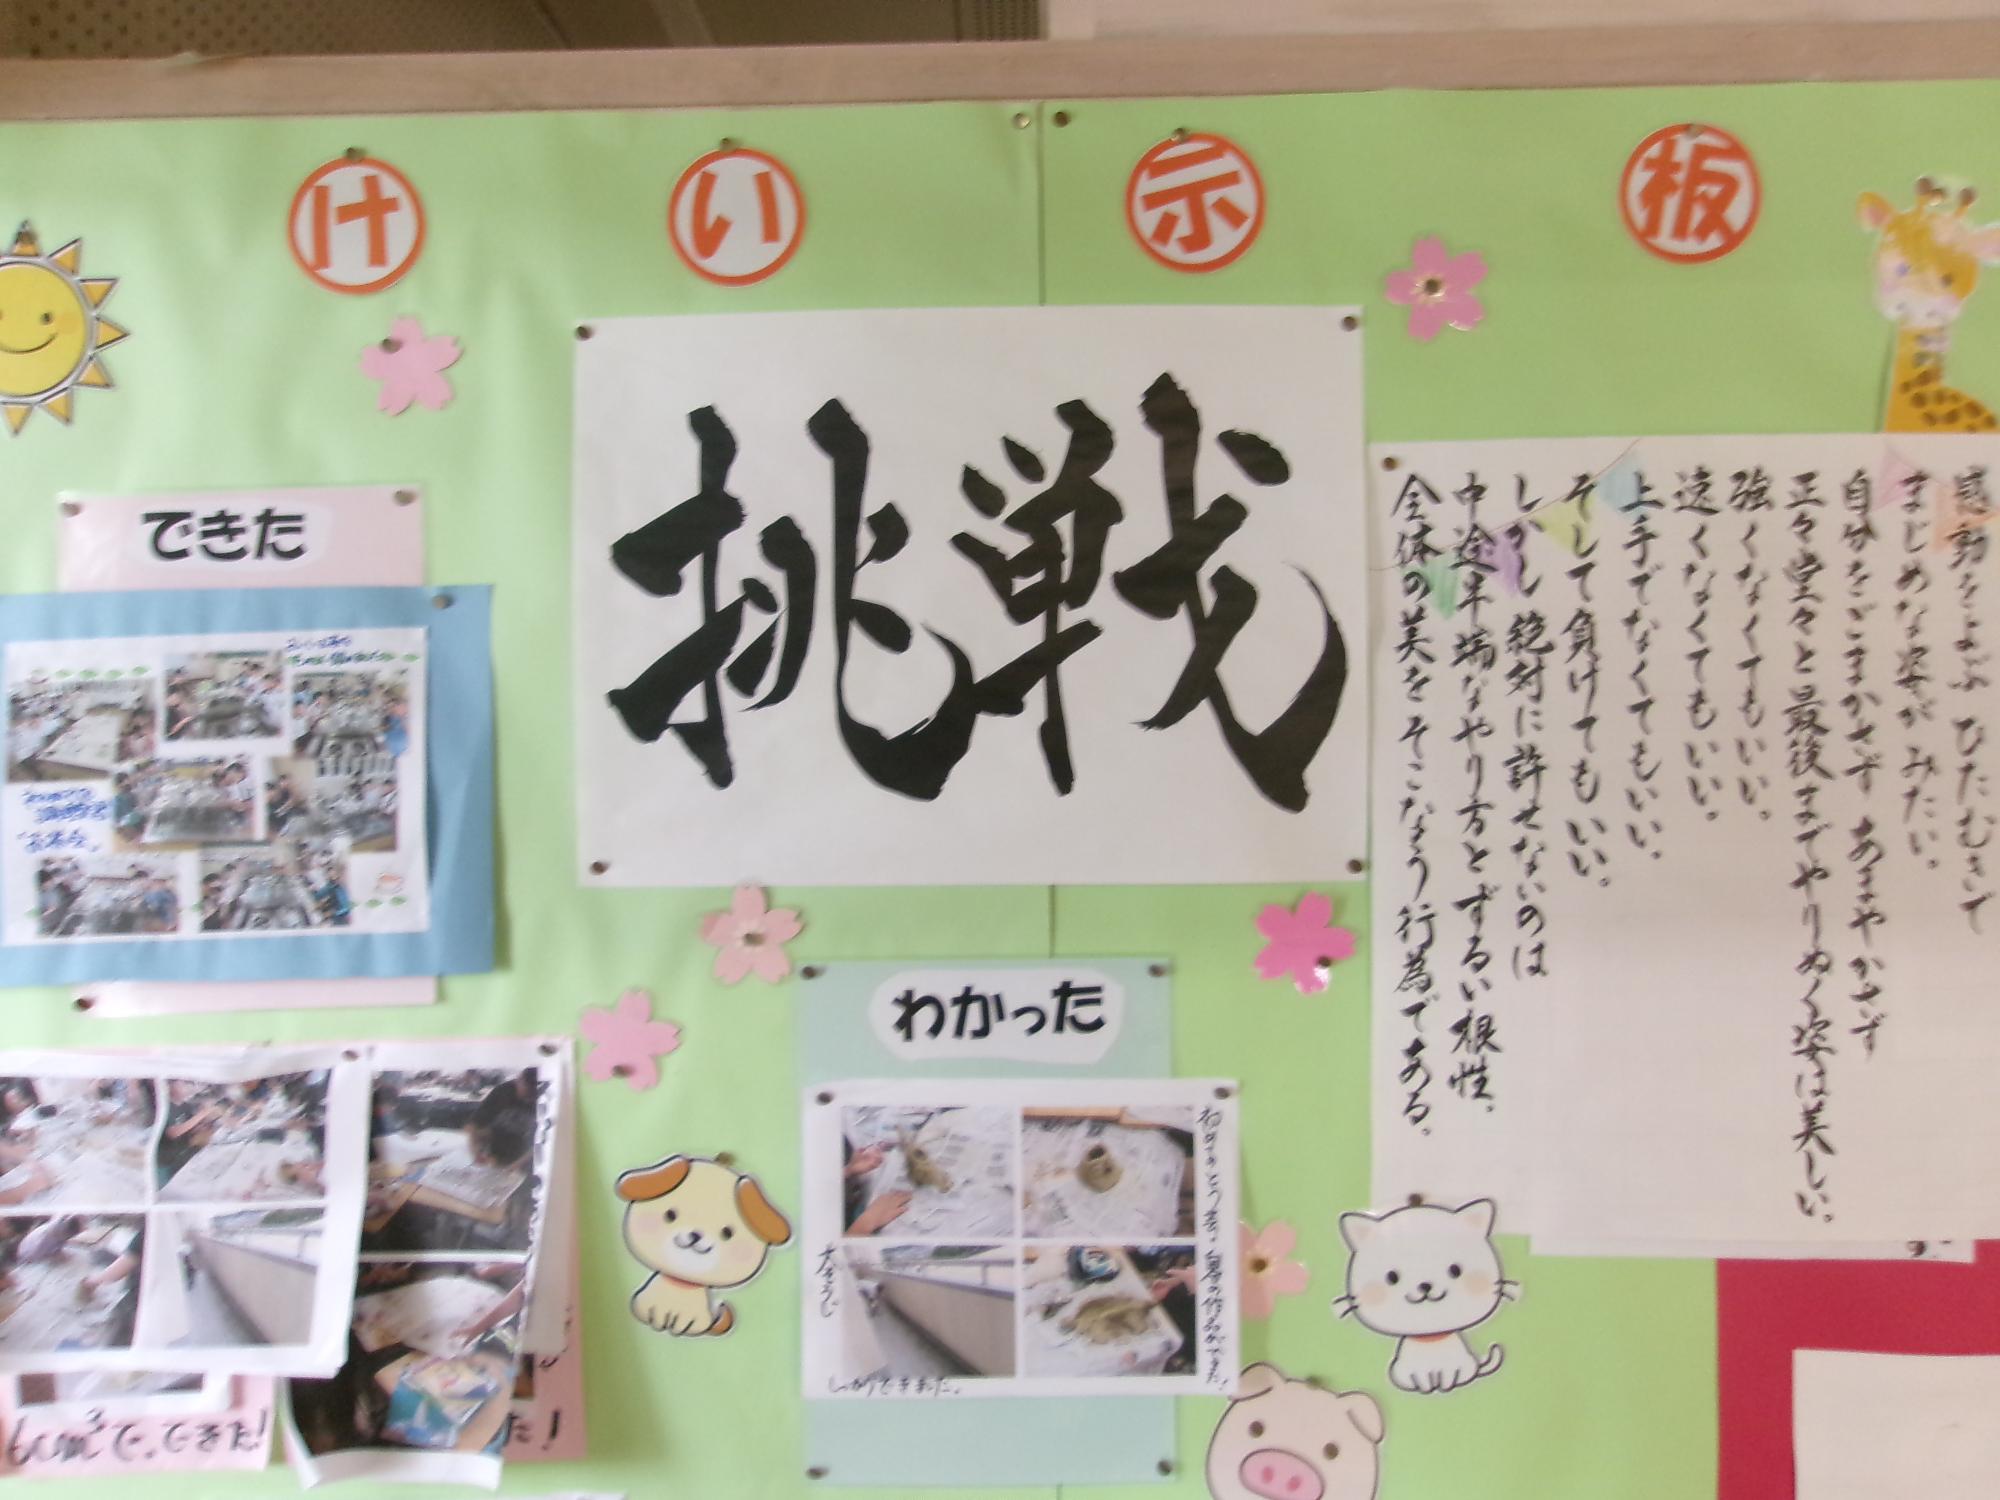 けい示板
挑戦
感動をよぶ ひたむきで
まじめな姿が みたい。
自分をごまかさず あまやかさず
正々堂々と最後までやりぬく姿は美しい。
強くなくてもいい。
速くなくてもいい。
上手でなくてもいい。
そして負けてもいい。
しかし 絶対に許せないのは
中途半端なやり方とずるい根性。
全体の美をそこなう行為である。
できた
わかった
大そうじ
しっかりできました。
できた!
た!